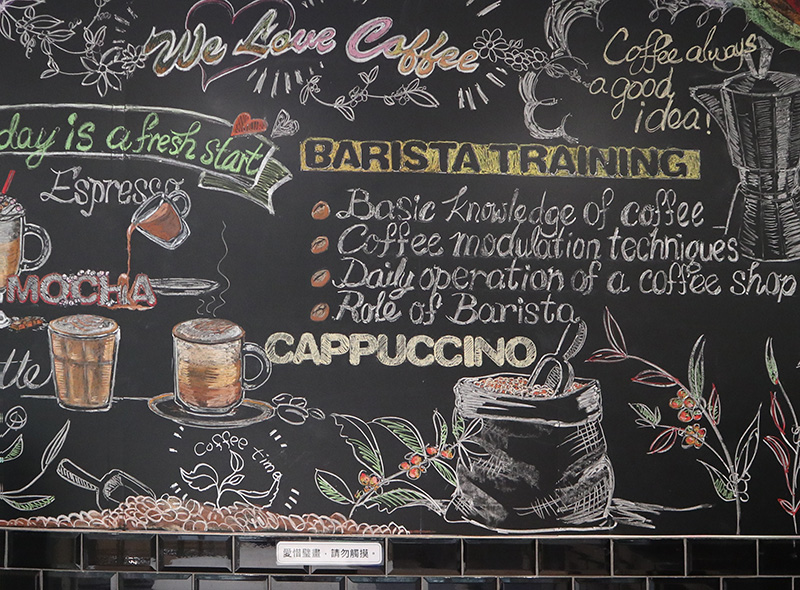 We Love Coffee
Coffee always
a good
idea!
day is a fresh start
BARISTA TRAINING
Espresso
Basic Knowledge of coffee
Coffee modulation techniques
Daily operation of a coffee shop
Role of Barista
MOCHA
CAPPUCCINO
tte
Coffee tim
愛惜壁畫，請勿觸摸。